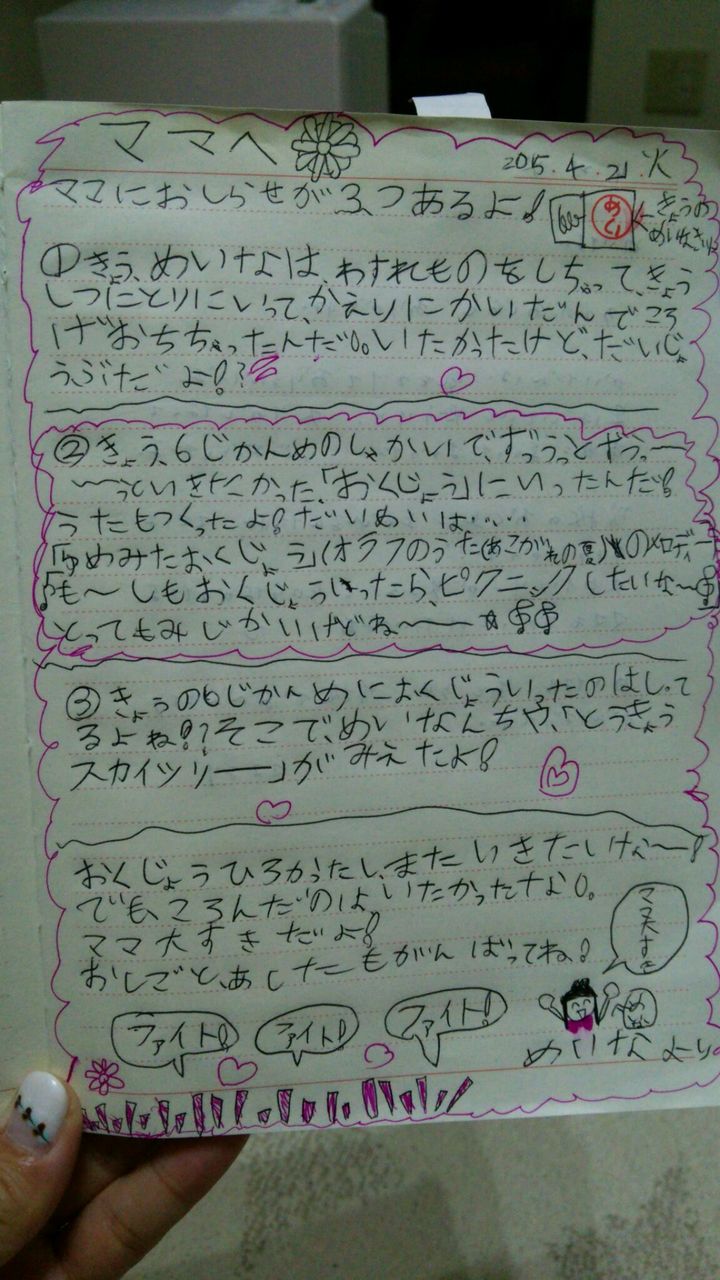 ママへ
2015.4.21.火
ママにおしらせが3つあるよ!
めい
←きょうの
①きょう、めいなは、わすれものをしちゃって、きょう
しつにとりにいって、かえりにかいだんでころ
げおちちゃったんだ。いたかったけど、だいじょ
うぶだよ!?
②きょう、6じかんめのしゃかいで、ずっうっとずうっ〜
〜っといきたかった、「おくじょう」にいったんだ!
うたもつくったよ!だいめいは・・・・・
「ゆめみたおくじょう」(オラフのうた(あこがれの夏)のメロディー
♪「も〜しもおくじょういったら、ピクニックしたいな〜
とってもみじかいけどね〜〜☆
③きょうの6じかんめにおくじょういったのはしって
るよね!?そこで、めいなんちゃ、「とうきょう
スカイツリー」がみえたよ!
おくじょうひろかったし、またいきたいけん〜!
でも、ころんだのは、いたかったな。
ママ大すきだよ!
おしごと、あしたもがんばってね!
ママ大すき
ファイト! ファイト! ファイト!
めいなより